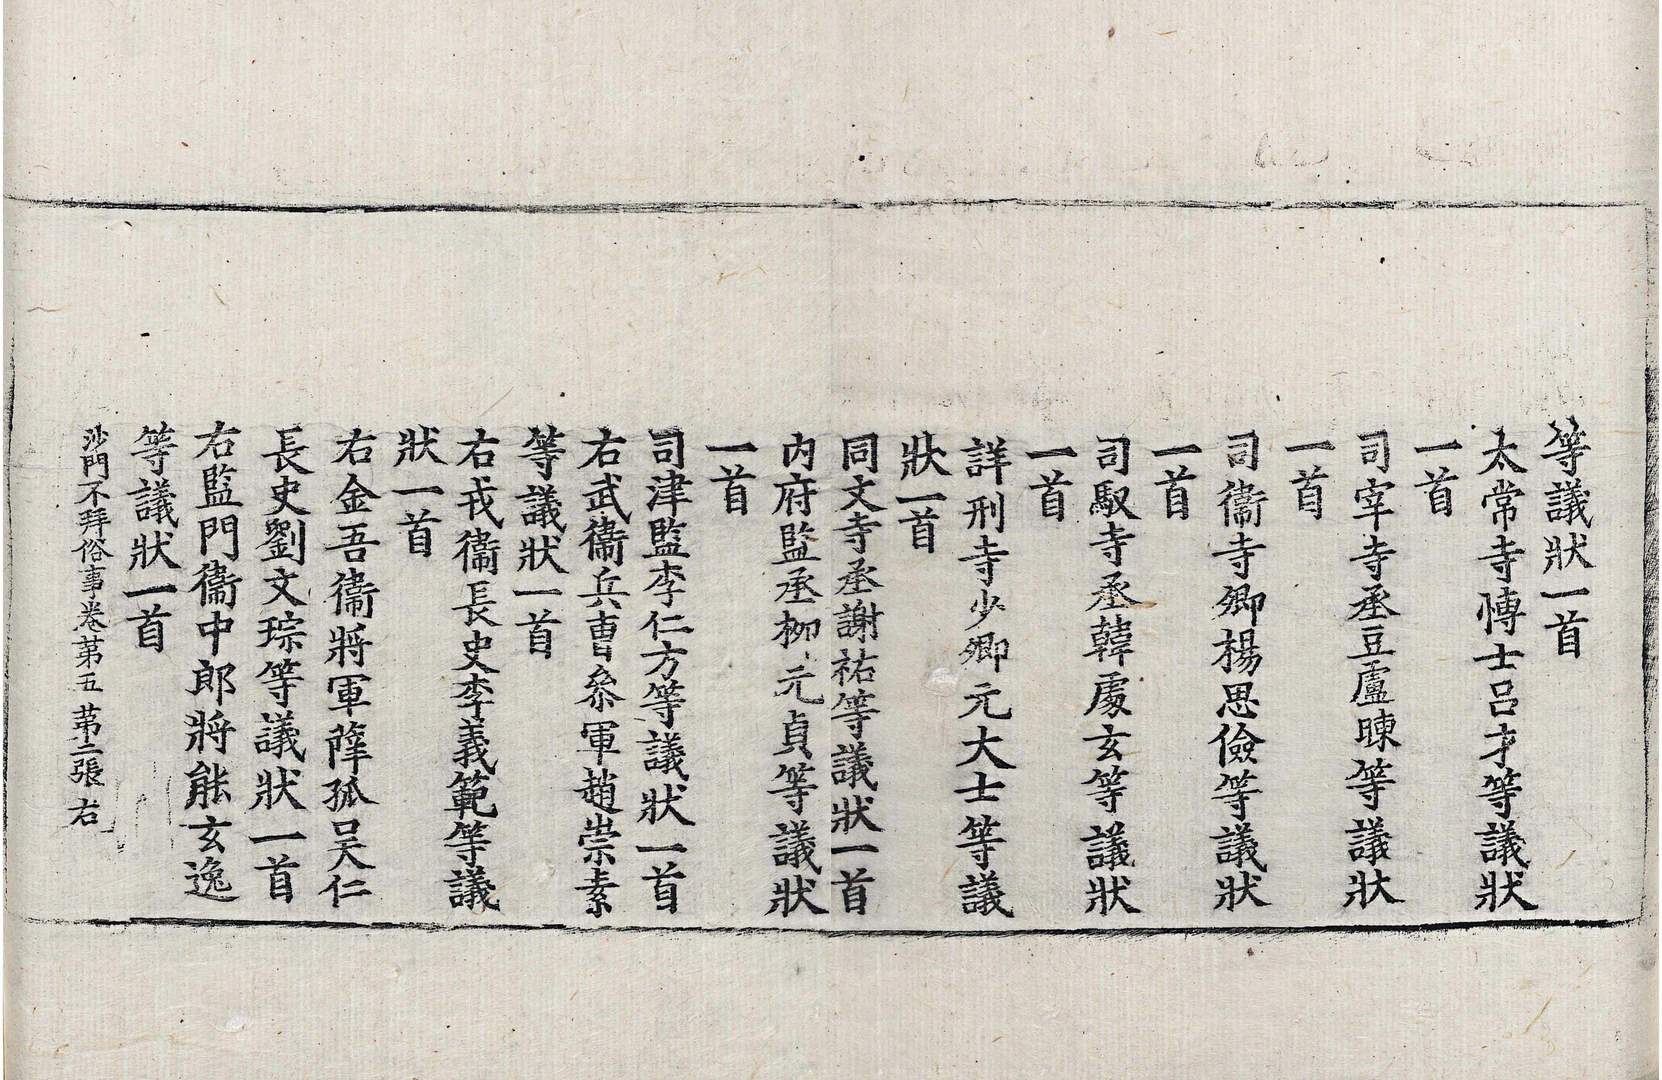 等議狀一首
太常寺博士吕才等議狀
一首
司宰寺丞豆盧暕等議狀
一首
司衞寺卿楊思儉等議狀
一首
司馭寺丞韓處玄等議狀
一首
詳刑寺少卿元大士等議
狀一首
同文寺丞謝祐等議狀一首
内府監丞柳元貞等議狀
一首
司津監李仁方等議狀一首
右武衞兵曺叅軍趙崇素
等議狀一首
右戎衞長史李義範等議
狀一首
右金吾衞將軍薛孤吴仁
長史劉文琮等議狀一首
右監門衞中郎將能玄逸
等議狀一首
沙門不拜俗事卷苐五 苐二張 右